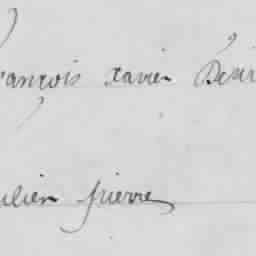 rançois Xavier Désir
ulien pierre